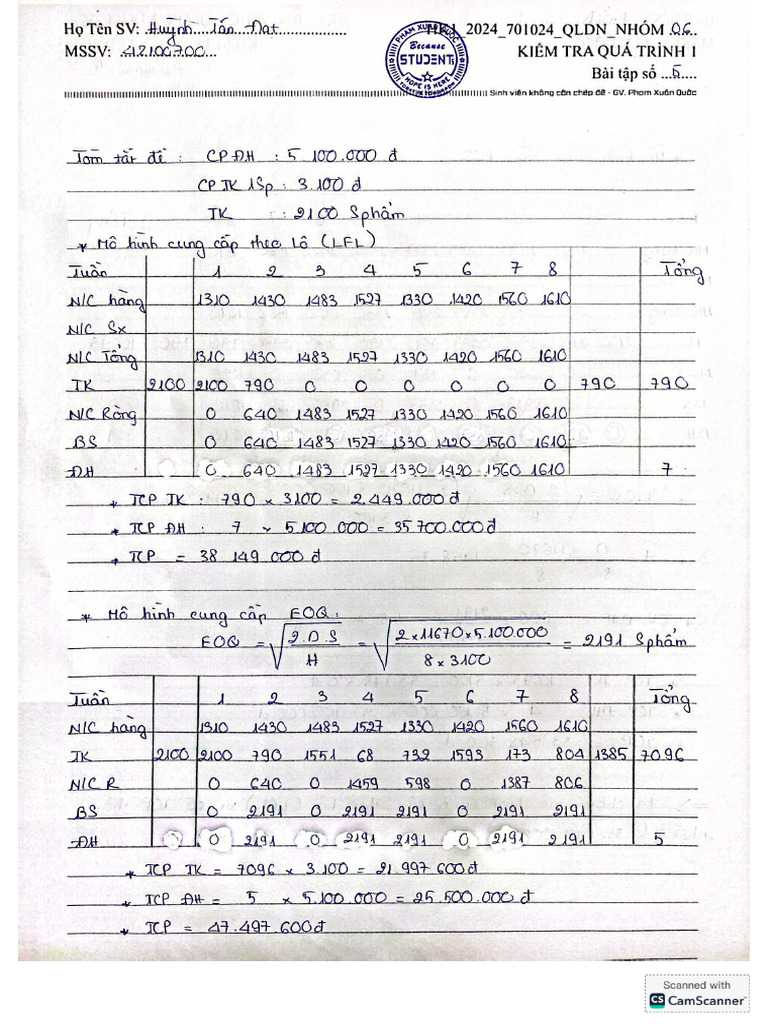 Họ Tên SV: Huỳnh Tấn Đạt
1_2024_701024_QLDN_NHÓM 06
MSSV: 42100700
KIỂM TRA QUÁ TRÌNH 1
Bài tập số 5
PHẠM XUÂN QUỐC
Because
STUDENT
HOPE IS HERE
Sinh viên không cần chép đề - GV. Phạm Xuân Quốc
Tóm tắt đề : CP ĐH : 5 100.000 đ
CP TK 1Sp : 3.100 đ
TK : 2100 Sphẩm
* Mô hình cung cấp theo Lô (LFL)
Tuần 1 2 3 4 5 6 7 8 Tổng
N/C hàng 1310 1430 1483 1527 1330 1420 1560 1610
N/C Sx
N/C Tổng 1310 1430 1483 1527 1330 1420 1560 1610
TK 2100 2100 790 0 0 0 0 0 0 790 790
N/C Ròng 0 640 1483 1527 1330 1420 1560 1610
BS 0 640 1483 1527 1330 1420 1560 1610
ĐH 0 640 1483 1527 1330 1420 1560 1610 7
* TCP TK : 790 × 3100 = 2.449.000đ
* TCP ĐH : 7 × 5.100.000 = 35.700.000đ
* TCP = 38 149.000 đ
* Mô hình cung cấp EOQ:
EOQ = √(2.D.S / H) = √(2×11670×5.100.000 / 8×3100) = 2191 Sphẩm
Tuần 1 2 3 4 5 6 7 8 Tổng
N/C hàng 1310 1430 1483 1527 1330 1420 1560 1610
TK 2100 2100 790 1551 68 732 1593 173 804 1385 7096
N/C R 0 640 0 1459 598 0 1387 806
BS 0 2191 0 2191 2191 0 2191 2191
ĐH 0 2191 0 2191 2191 0 2191 2191 5
* TCP TK = 7096 × 3.100 = 21.997 600đ
* TCP ĐH = 5 × 5.100.000 = 25.500.000đ
* TCP = 47.497.600đ
Scanned with
CS CamScanner